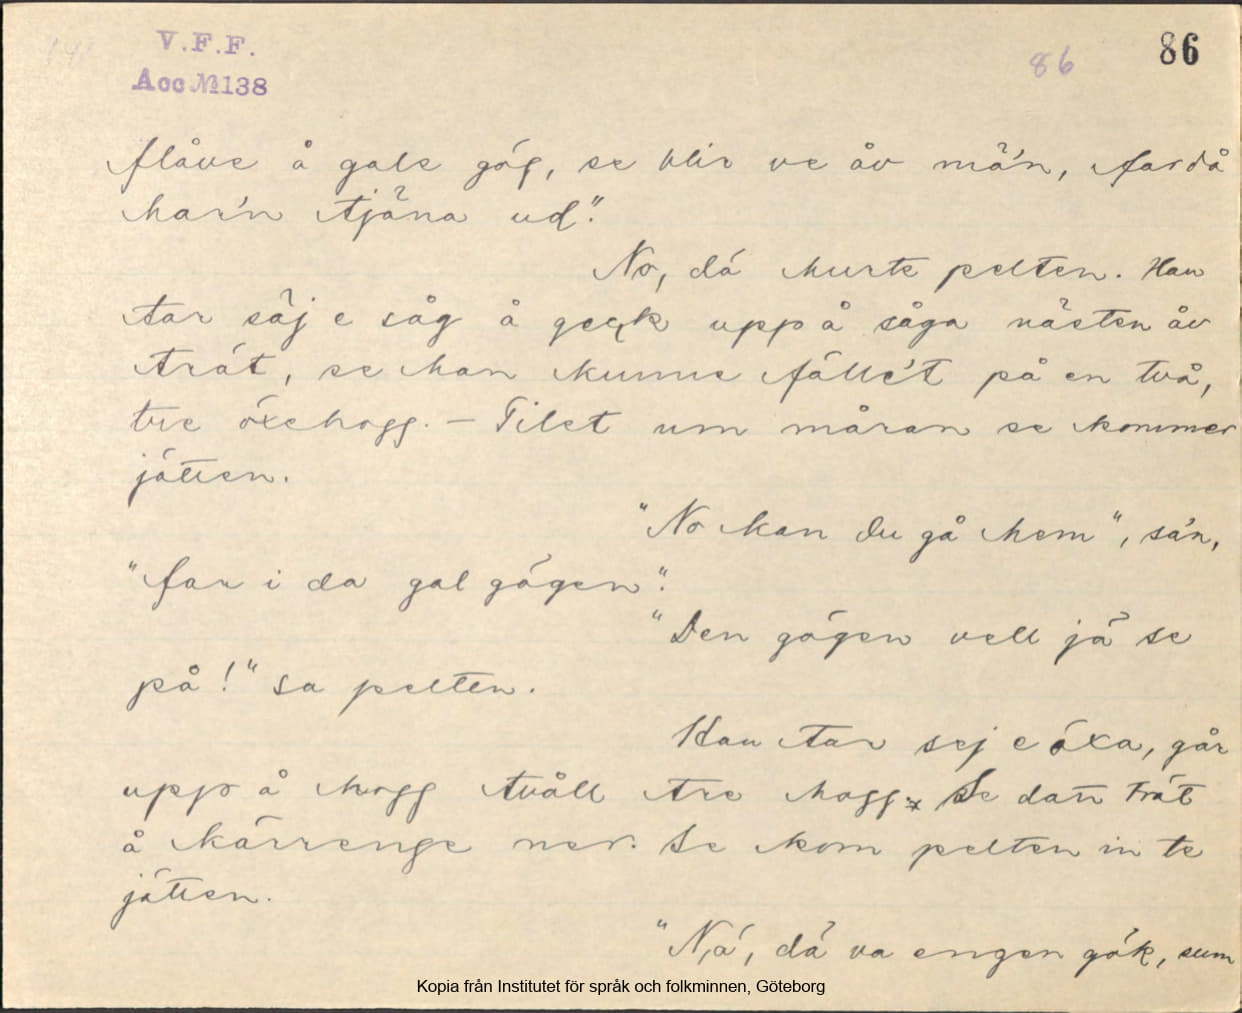 V.F.F.
Acc № 138
86
86
flåve å gale gög, se blir ve åv mä'n, fardå
har'n tjäna ud".
No, dá hurte pelten. Han
tar säj e såg å geck upp å såga nästen åv
trät, se han kunne fälle't på en två,
tre öxehogg. — Tilet um måran se kommer
jätten.
"No kan du gå hem", sä'n,
"far i da gal gögen".
"Den gögen vell jä se
på!" sa pelten.
Han tar sej e öxa, går
upp å hogg tvåll tre hogg. Se dan trät
å kärrenge ner. Se kom pelten in te
jätten.
"Nä, dä va engen gök, sum
Kopia från Institutet för språk och folkminnen, Göteborg